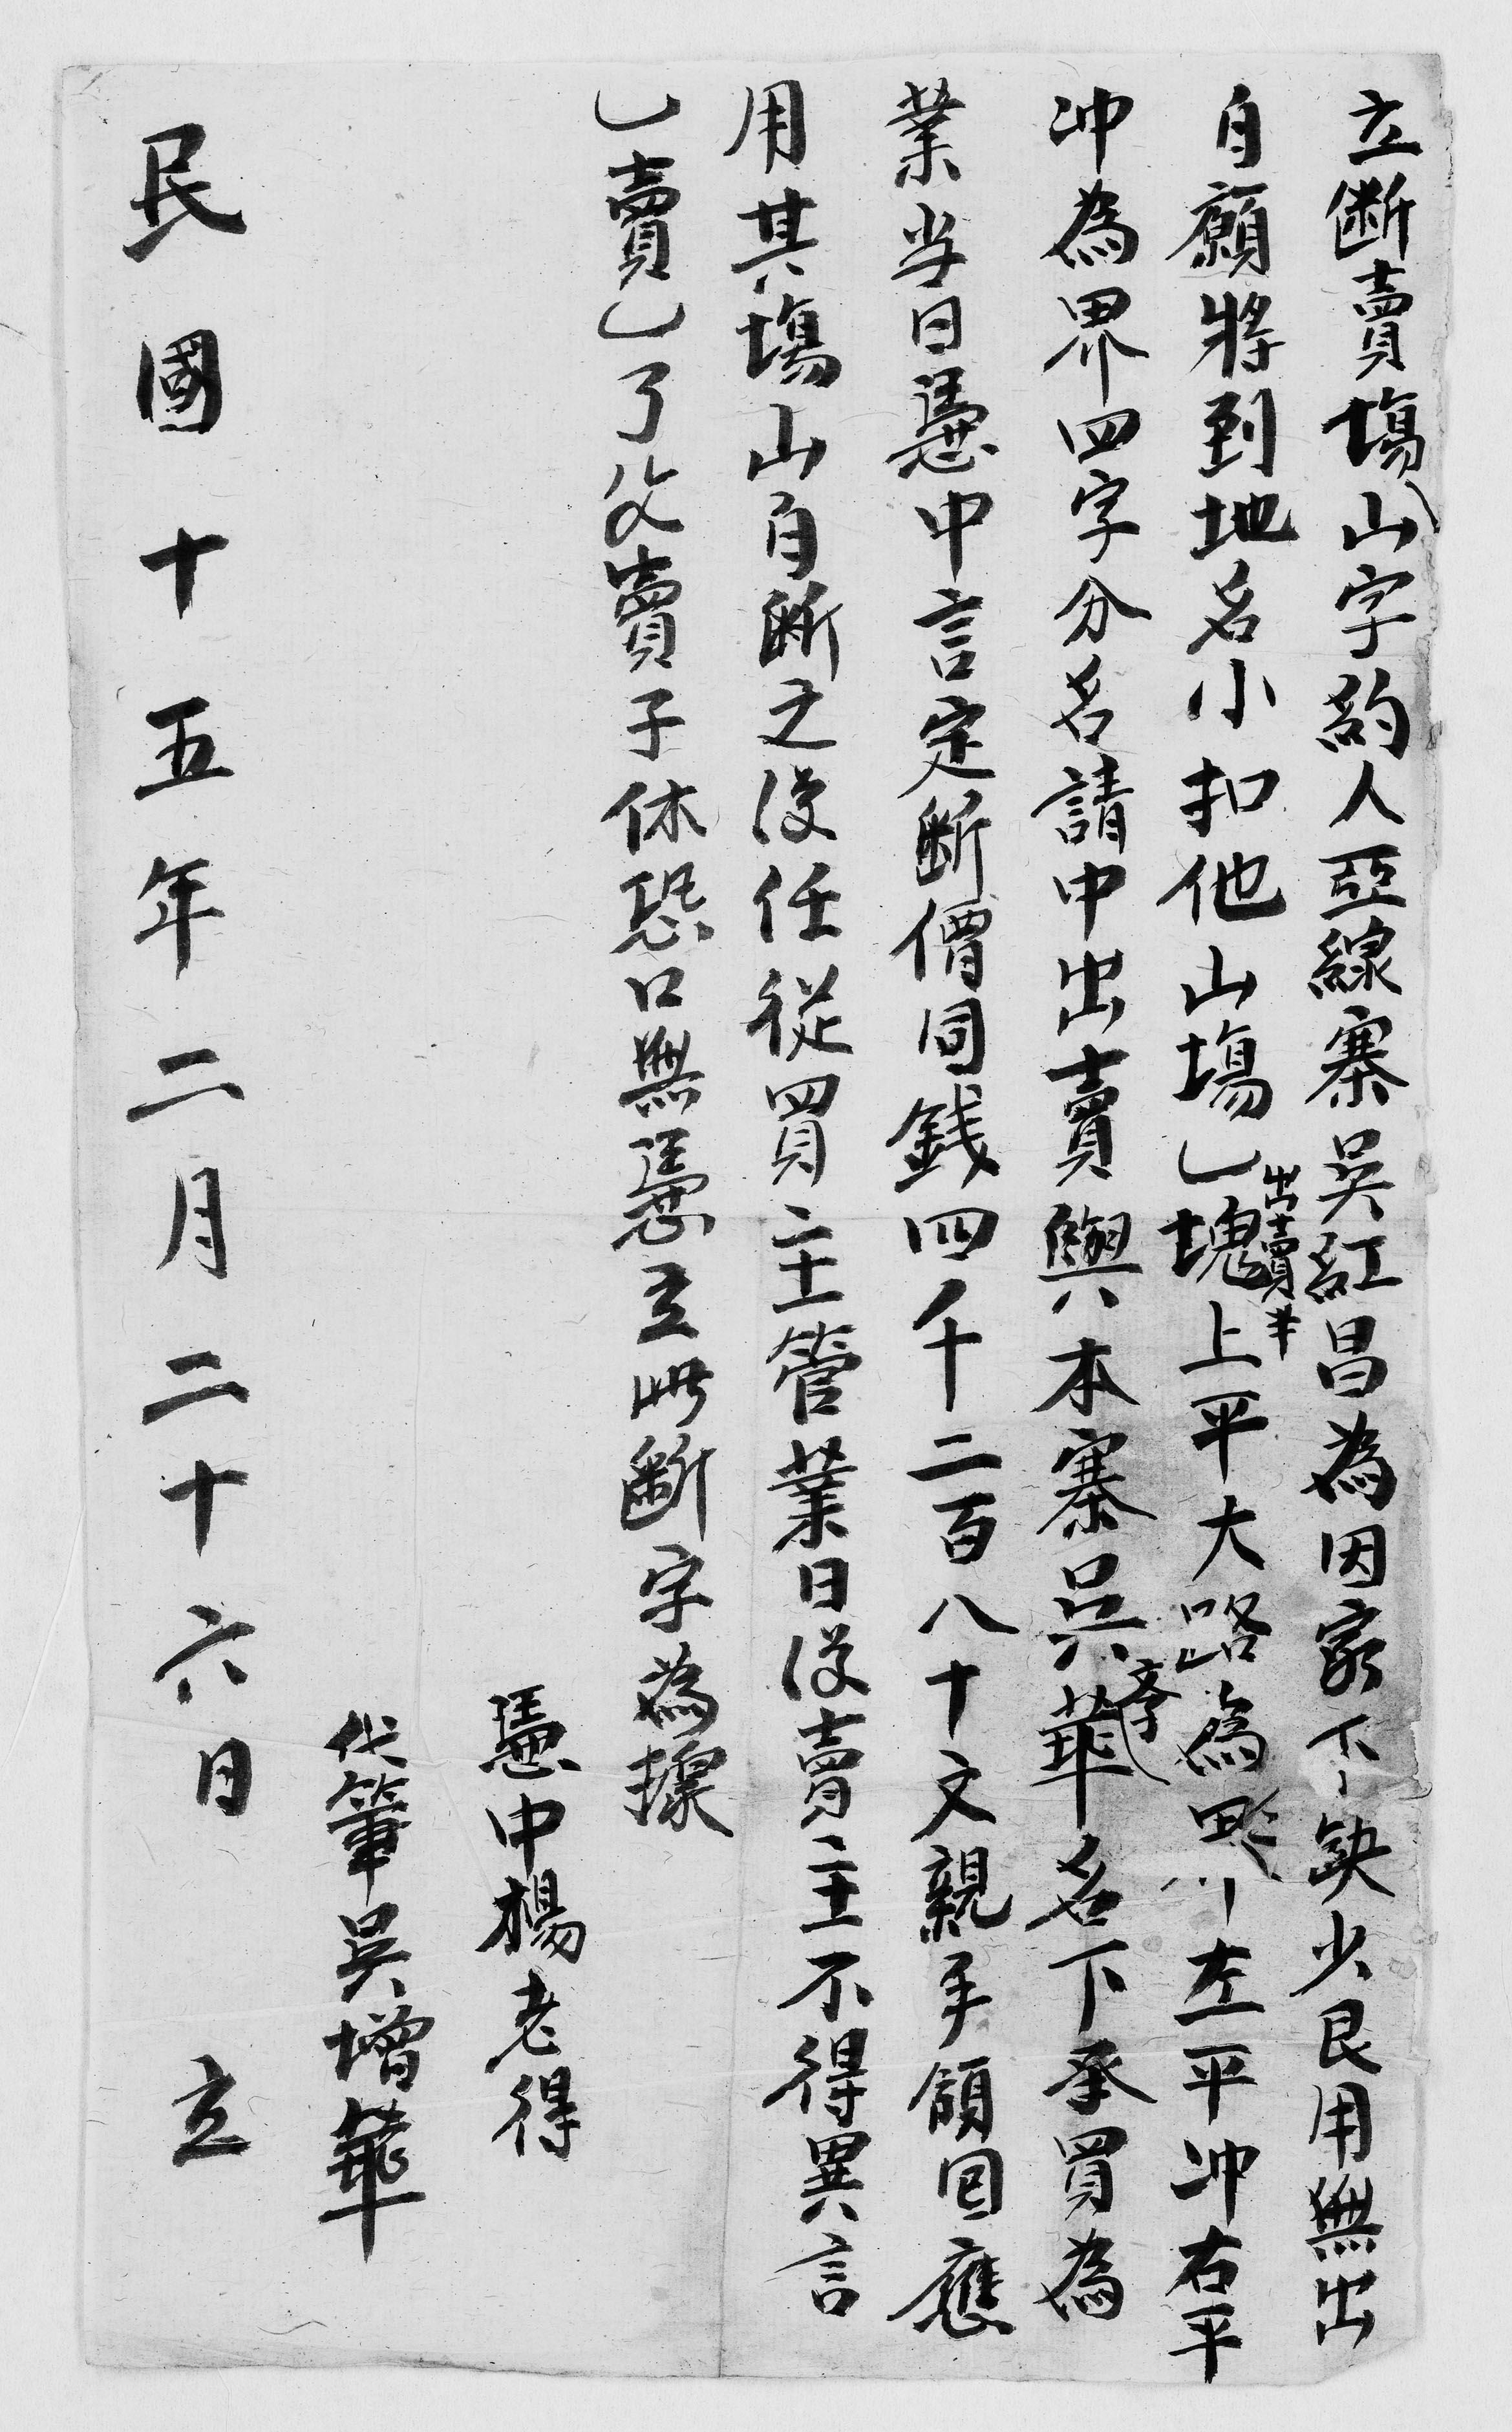 立断賣塲山字約人亞線寨吳紅昌為因家下缺少艮用無出
自願將到地名小扣他山塲乚塊出賣半上平大路為界左平冲右平
冲為界四字分名請中出賣與本寨吳華孝名下承買為
業当日憑中言定断價同錢四千二百八十文親手領回應
用其塲山自断之後任從買主管業日後賣主不得異言
乚賣乚了父賣子休恐口無憑立此断字為據
憑中楊老得
代筆吳增華
民國十五年二月二十六日 立